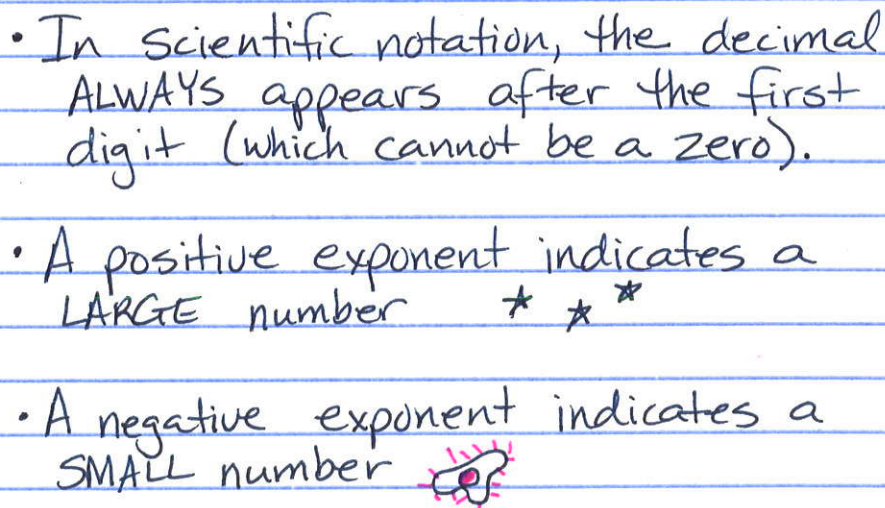 • In scientific notation, the decimal
ALWAYS appears after the first
digit (which cannot be a zero).
• A positive exponent indicates a
LARGE number
• A negative exponent indicates a
SMALL number